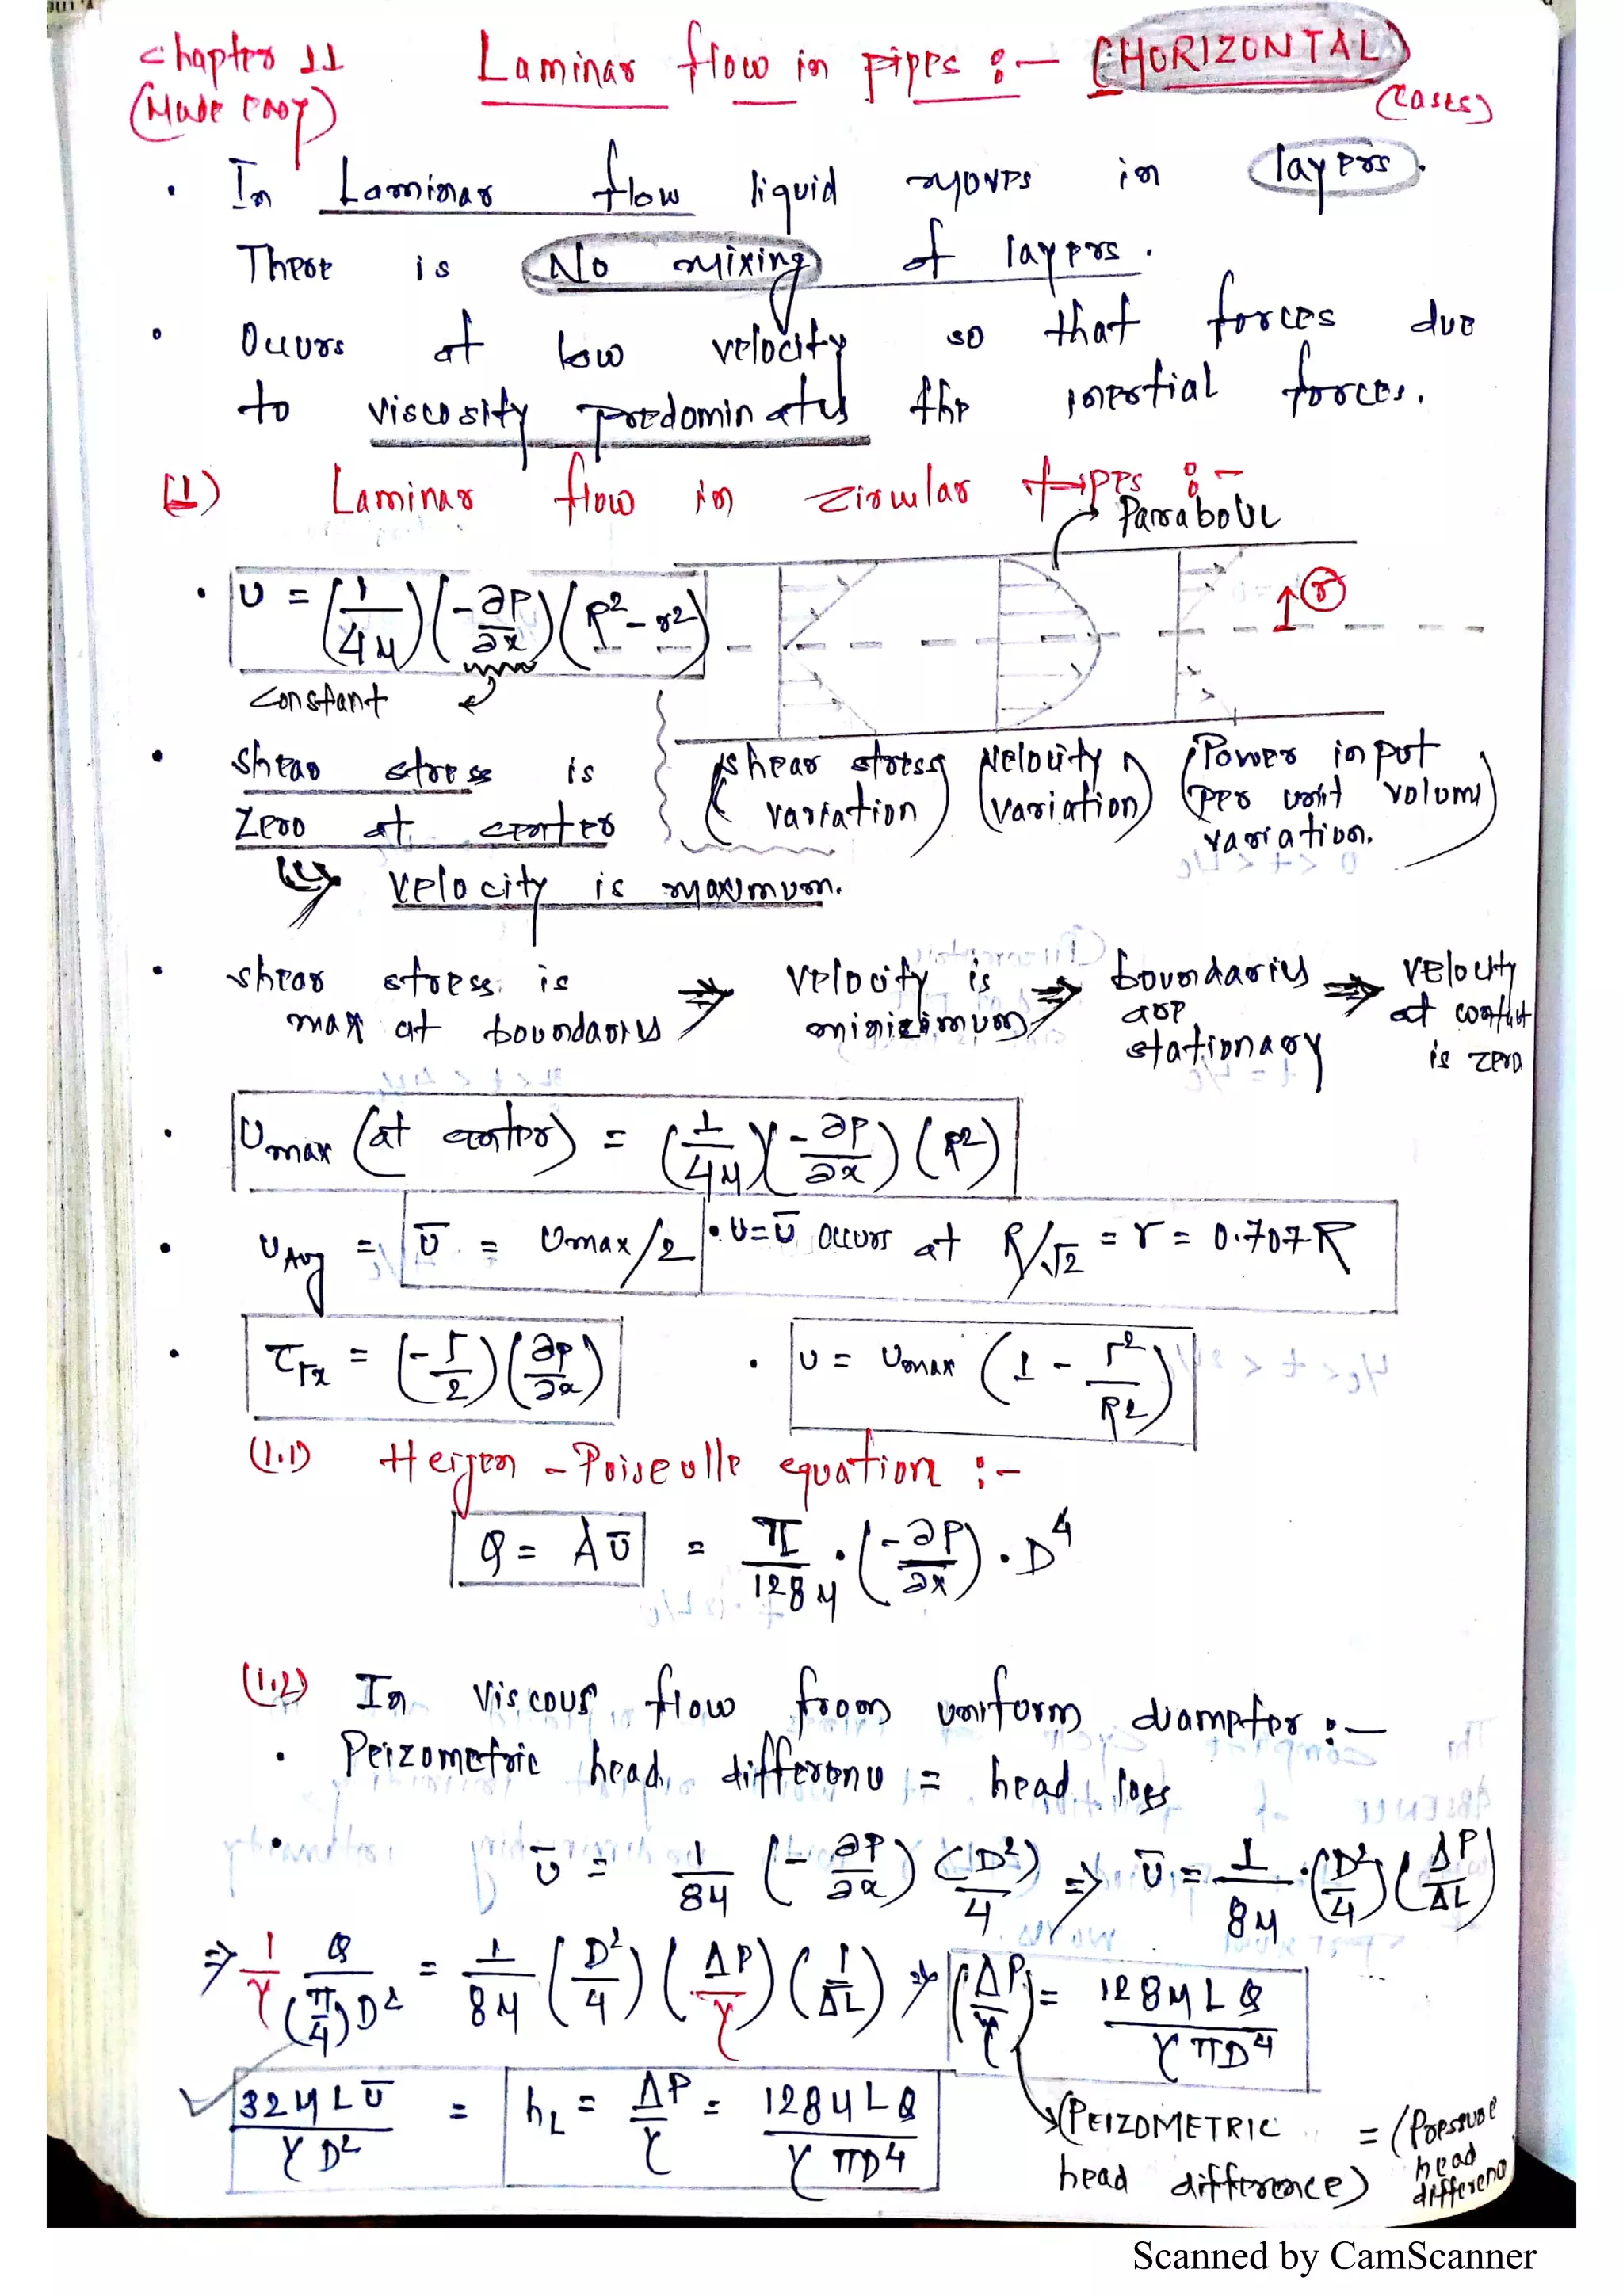 Chapter 11 Laminar flow in pipes :- (HORIZONTAL)
(Made Easy) (Cases)
• In Laminar flow liquid moves in layers.
There is No mixing of layers.
• Occurs at low velocity so that forces due
to viscosity predominates the inertial forces.
(1) Laminar flow in circular pipes :-
Parabolic
• U = (1/4μ)(-∂P/∂x)(R² - r²)
r
constant
• shear stress is
zero at center
(shear stress variation) (Velocity variation) (Power input per unit volume variation.)
↳ velocity is maximum.
• shear stress is max at boundaries ⇒ velocity is minimum ⇒ boundaries are stationary ⇒ velocity at contact is zero
• Umax (at center) = (1/4μ)(-∂P/∂x)(R²)
• UAvg = Ū = Umax/2 • U=Ū occurs at R/√2 = r = 0.707R
• τrx = (-r/2)(∂p/∂x) • U = Umax (1 - r²/R²)
(1.1) Heigen - Poiseulle equation :-
Q = AŪ = π/128μ · (-∂P/∂x) · D⁴
(1.2) In viscous flow from uniform diameter :-
• Peizometric head difference = head loss
• Ū = 1/8μ (-∂P/∂x) (D²/4) ⇒ Ū = 1/8μ · (D²/4)(ΔP/ΔL)
⇒ 1/γ Q/(π/4)D² = 1/8μ (D²/4)(ΔP/γ)(1/ΔL) ⇒ (ΔP/γ) = 128μLQ/γπD⁴
32μLŪ/γD² = hL = ΔP/γ = 128μLQ/γπD⁴
(PEIZOMETRIC head difference) = (Pressure head difference
Scanned by CamScanner